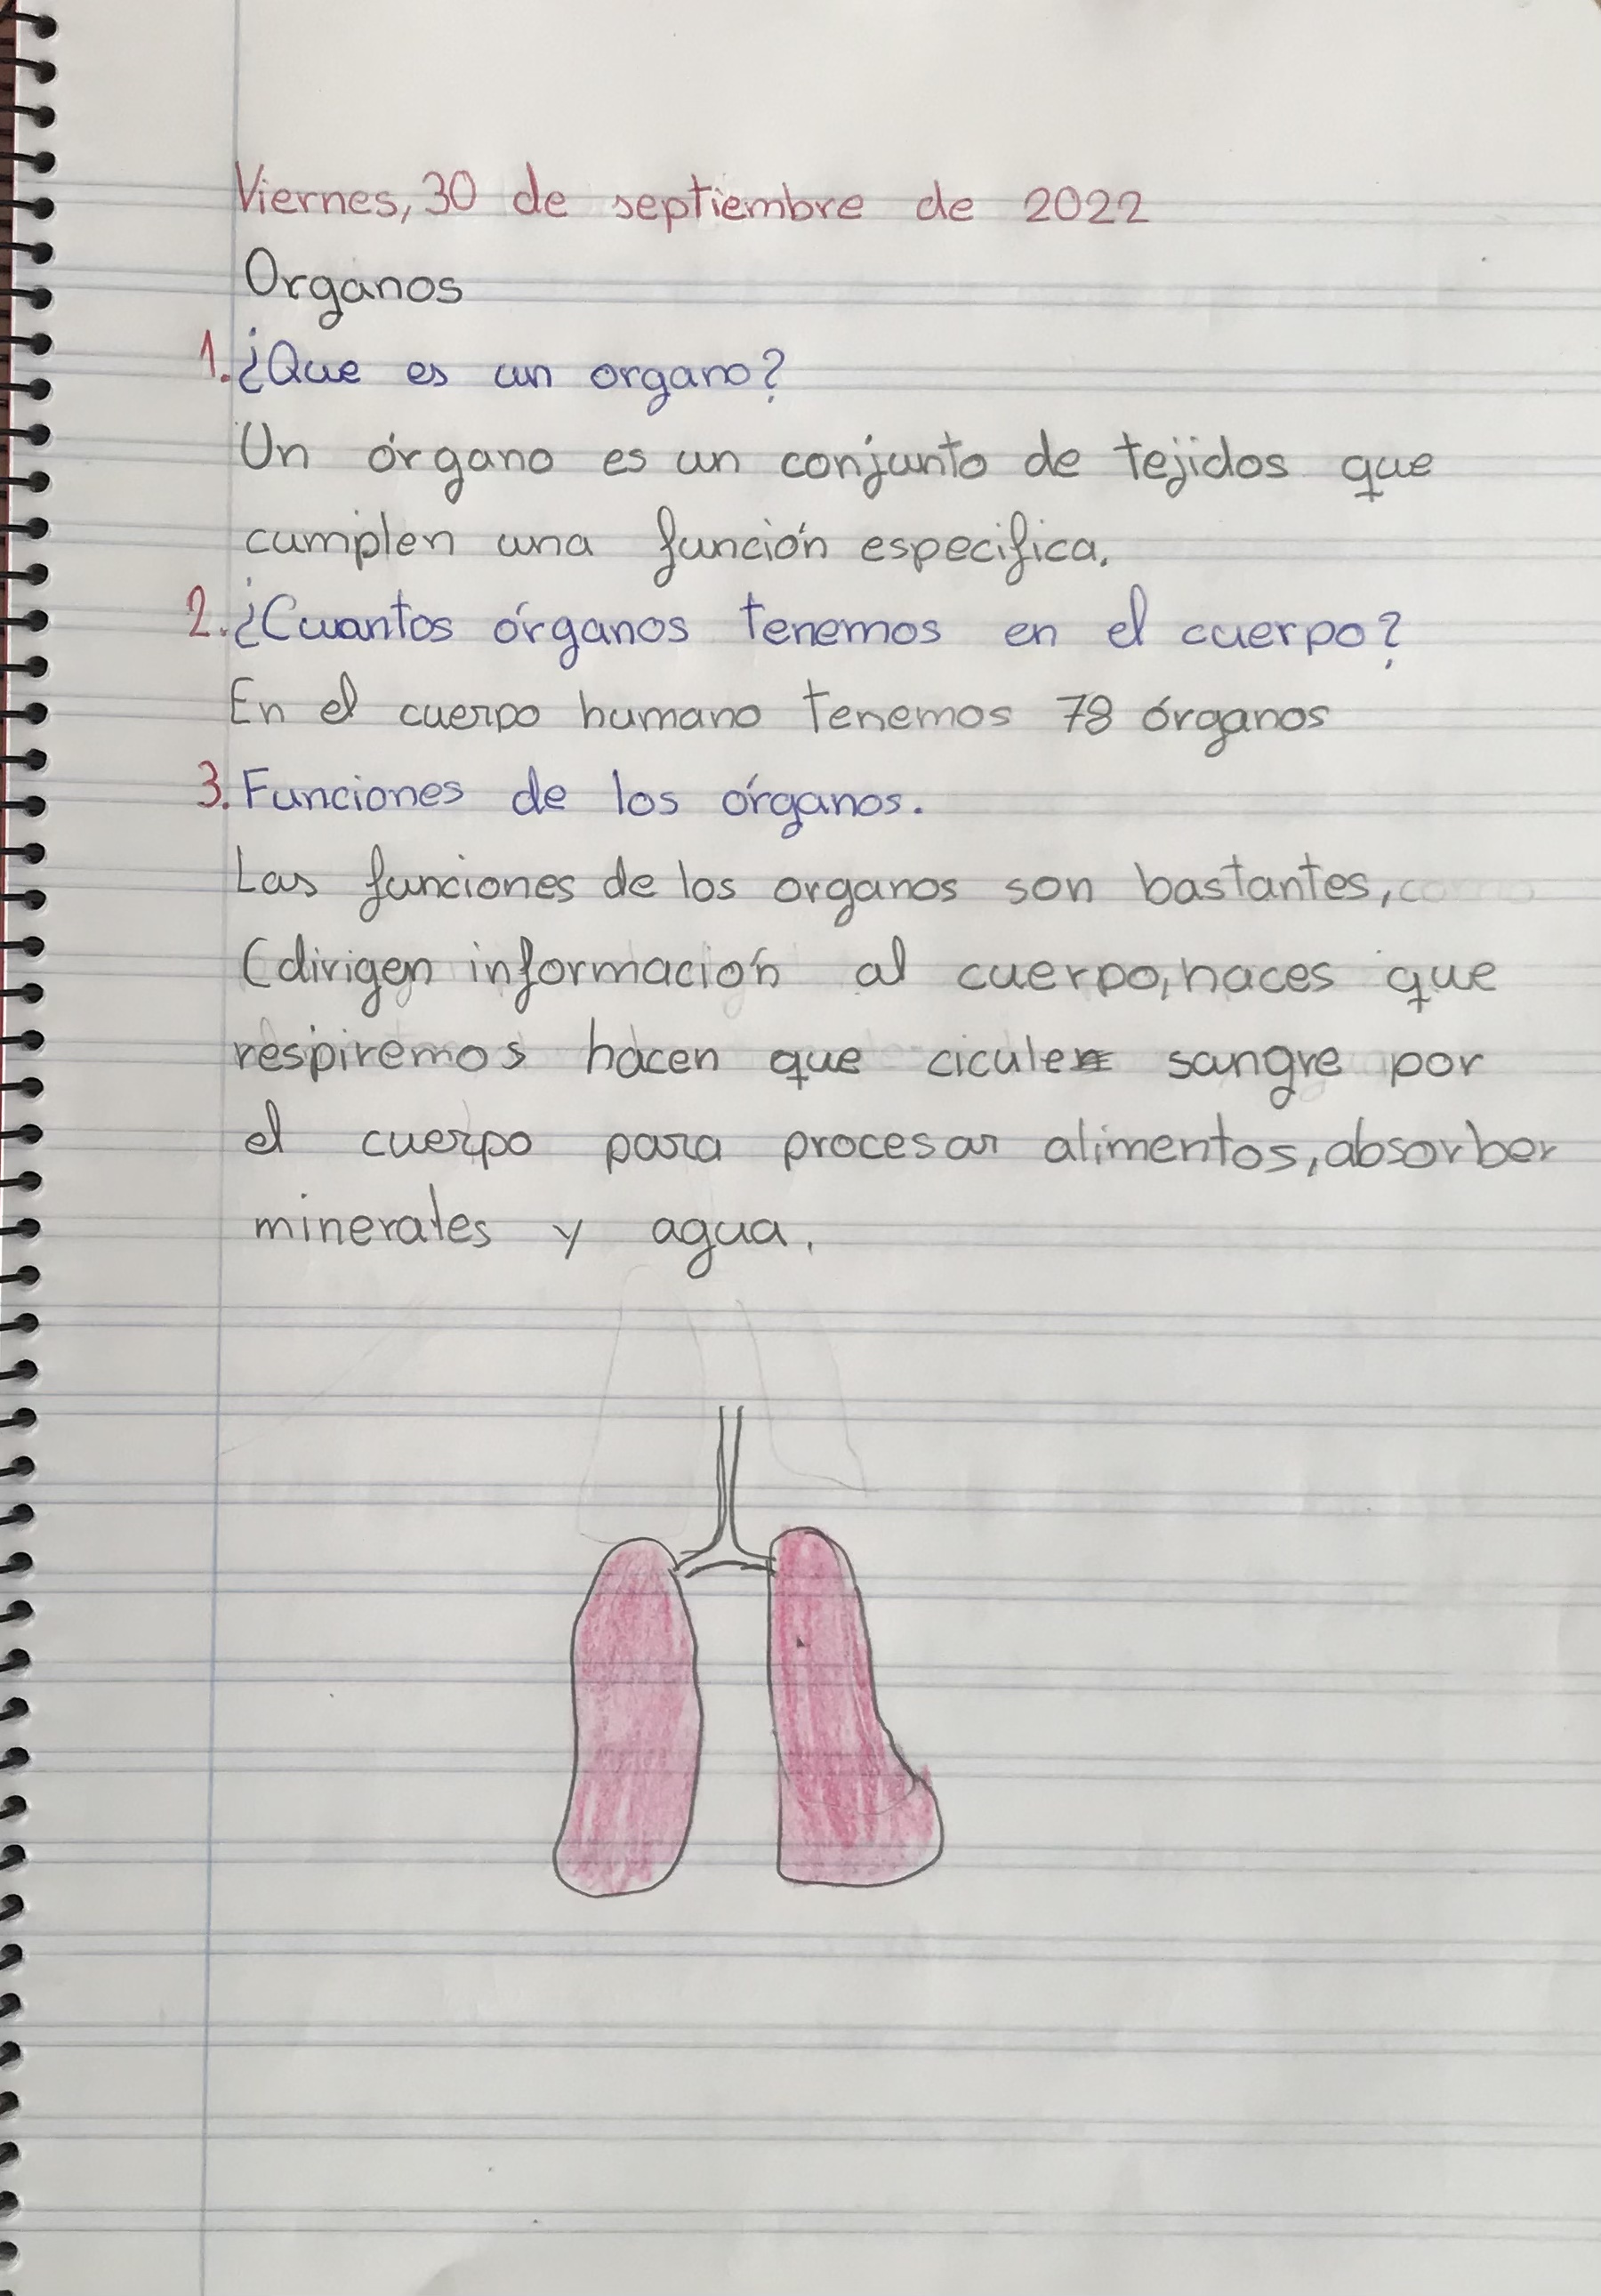 Viernes, 30 de septiembre de 2022
Organos
1. ¿Que es un organo?
Un órgano es un conjunto de tejidos que
cumplen una función especifica.
2. ¿Cuantos órganos tenemos en el cuerpo?
En el cuerpo humano tenemos 78 órganos
3. Funciones de los órganos.
Las funciones de los organos son bastantes, como
(dirigen información al cuerpo, haces que
respiremos hacen que cicule sangre por
el cuerpo para procesar alimentos, absorber
minerales y agua.